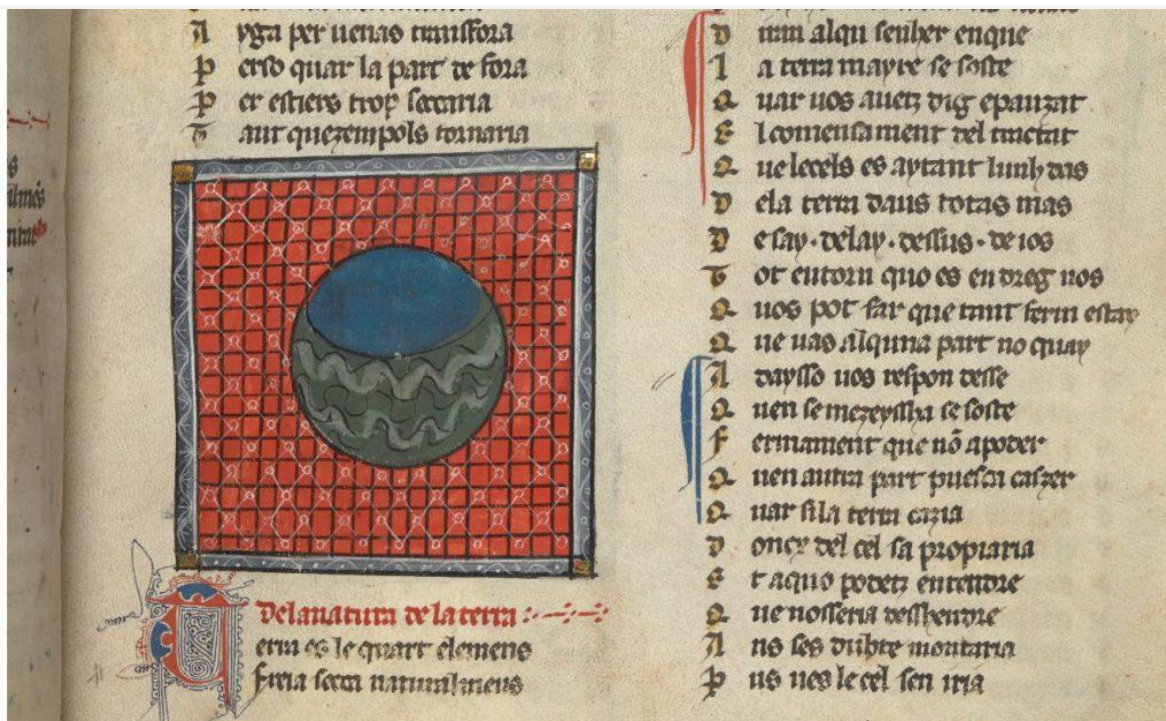 A yga per uenas transfora
P erso quar la part de fora
P er estiers trop seccaria
T ant quezempols tornaria
Delanatura de laterra
T erra es le quart elemens
freia secca naturalmens
D un alqu senher enque
L a terra mayre se soste
Q uar uos auetz dig epauzat
E l comensament del tractat
Q ue lecels es aytant lunhdas
D ela terra daus totas mas
D e say · delay · dessus · de ios
T ot entorn quo es en dreg nos
Q uos pot far que tant ferm estay
Q ue uas alquna part no quay
A daysso uos respon desse
Q uen se mezeyssha se soste
F ermament que nō apoder
Q uen autra part puesca cazer
Q uar sila terra cazia
D oncx del cel sa propiaria
E t aquo podetz entendre
Q ue nosseria desshendre
A ns ses dubte montaria
P us ues le cel sen iria